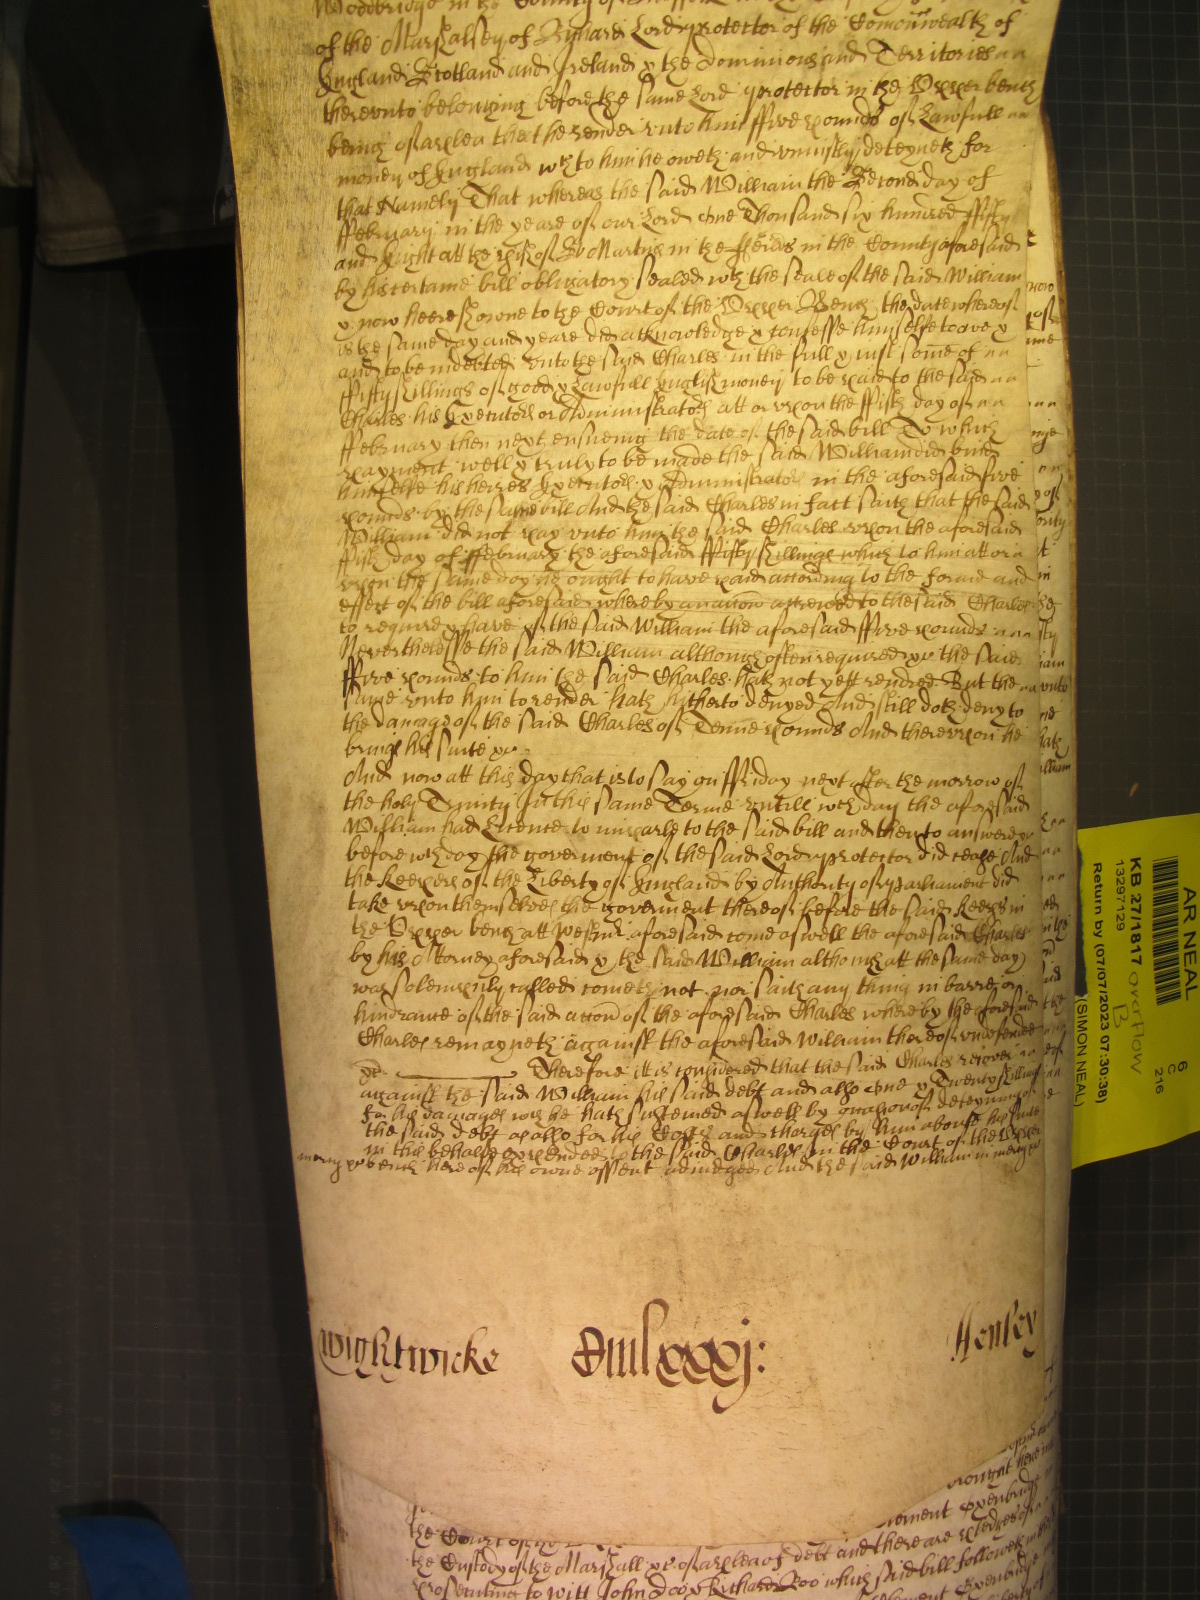 Woodbridge in the County of
of the Marshalsey of Richard Lord protector of the Comonwealth of
England Scotland and Ireland & the dominions and Territories
therevnto belonging before the same Lord protector in the Vpper bench
being of a plea that he render vnto him ffive pounds of Lawfull
money of England wch to him he oweth and vniustly deteyneth for
that Namely That whereas the said William the Second day of
ffebruary in the yeare of our Lord One Thousand six hundred ffifty
and Eight att the parish of St Martins in the ffeilds in the County aforesaid
by his certaine bill obligatory sealed wth the seale of the said William
& now heere showne to the Court of the Vpper Bench the date whereof
is the same day and yeare did acknowledge & confesse himselfe to owe &
and to be indebted vnto the said Charles in the full & iust some of
ffifty shillings of good & Lawfull English money to be paid to the said
Charles his Executors or Administrators att or vpon the ffifth day of
ffebruary then next ensueing the date of the said bill To which
payment well & truly to be made the said William did bind
himselfe his heires Executors & Administrators in the aforesaid five
pounds by the same bill And the said Charles in fact saith that the said
William did not pay vnto him the said Charles vpon the aforesaid
ffifth day of ffebruary the aforesaid ffifty shillings which to him att or
vpon the same day he ought to have paid according to the forme and
effect of the bill aforesaid whereby an accon accrewed to the said Charles
to require & have of the said William the aforesaid ffive pounds
Neverthelesse the said William although often required &c the said
ffive pounds to him the said Charles hath not yett rendred But the
same vnto him to render hath hitherto denyed And still doth deny to
the damage of the said Charles of Tenne pounds And therevpon he
brings his suite &c
And now att this day that is to say on ffriday next after the morrow of
the holy Trinity In this same Terme vntill wch day the aforesaid
William had Licence to imparle to the said bill and then to answere &c
before wch day the goverment of the said Lord protector did cease And
the Keepers of the Liberty of England by Authority of parliament did
take vpon themselves the goverment thereof before the said Keepers in
the Vpper bench att Westmr aforesaid come aswell the aforesaid Charles
by his Attorney aforesaid & the said William although att the same day
was solempnly called cometh not nor saith any thing in barre or
hindrance of the said accon of the aforesaid Charles whereby the aforesaid
Charles remayneth against the aforesaid William thereof vndefended
&c Therefore it is considered that the said Charles recover
against the said William his said debt and also One & Twenty shillings
for his damages wch he hath susteined aswell by occasion of deteyning of
the said debt as also for his Costs and charges by him aboute his suite
in this behalfe expended to the said Charles in the Court of the Vpper
mercy &c bench here of his owne assent adiudged And the said William in mercy &c
Wightwicke
Henley
the Court of the
the Custody of the Marshall &c of a plea of debt and there are pledges of
prosecuting to witt John Doo & Richard Roo which said bill followeth
AR NEAL
KB 27/1817 overflow
13297129
B
Return by (07/07/2023 07:30:38)
(SIMON NEAL)
6
C
216